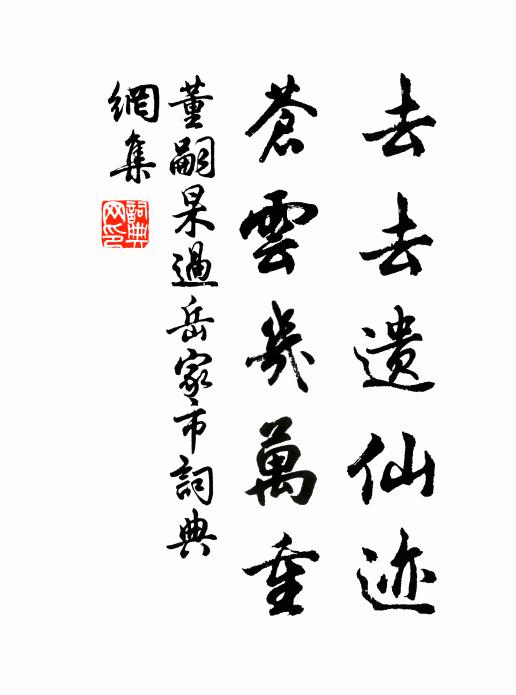 去去遺仙迹
蒼雲幾萬重
董嗣杲過岳家市詞典
網集
詞典
网印